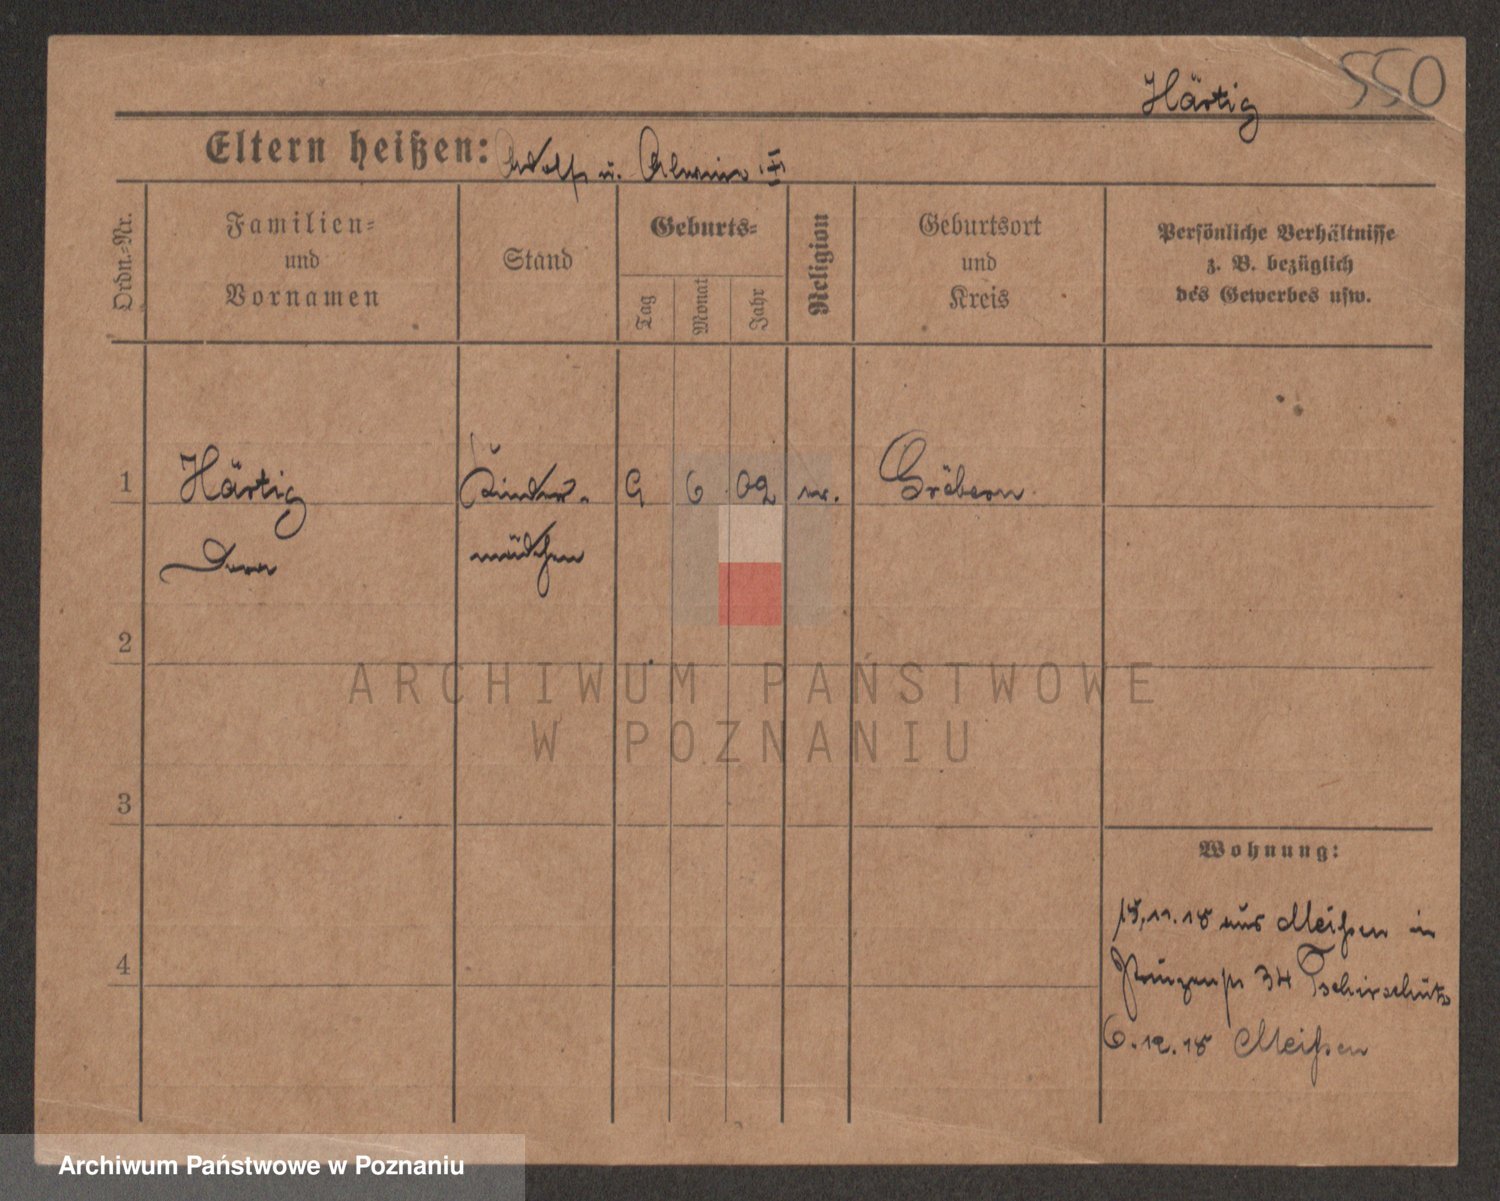 550
Härtig
Eltern heißen: Adolf u. Alwine
Ordn.-Nr.
Familien-
und
Vornamen
Stand
Geburts-
Tag
Monat
Jahr
Religion
Geburtsort
und
Kreis
Persönliche Verhältnisse
z. B. bezüglich
des Gewerbes usw.
1 Härtig Kinder- 9 6 02 Gröbern
Dora mädchen
2
3
4
Wohnung:
15.11.18 aus Meißen in
34 Tschirschütz
6.12.18 Meißen
ARCHIWUM PAŃSTWOWE
W POZNANIU
Archiwum Państwowe w Poznaniu